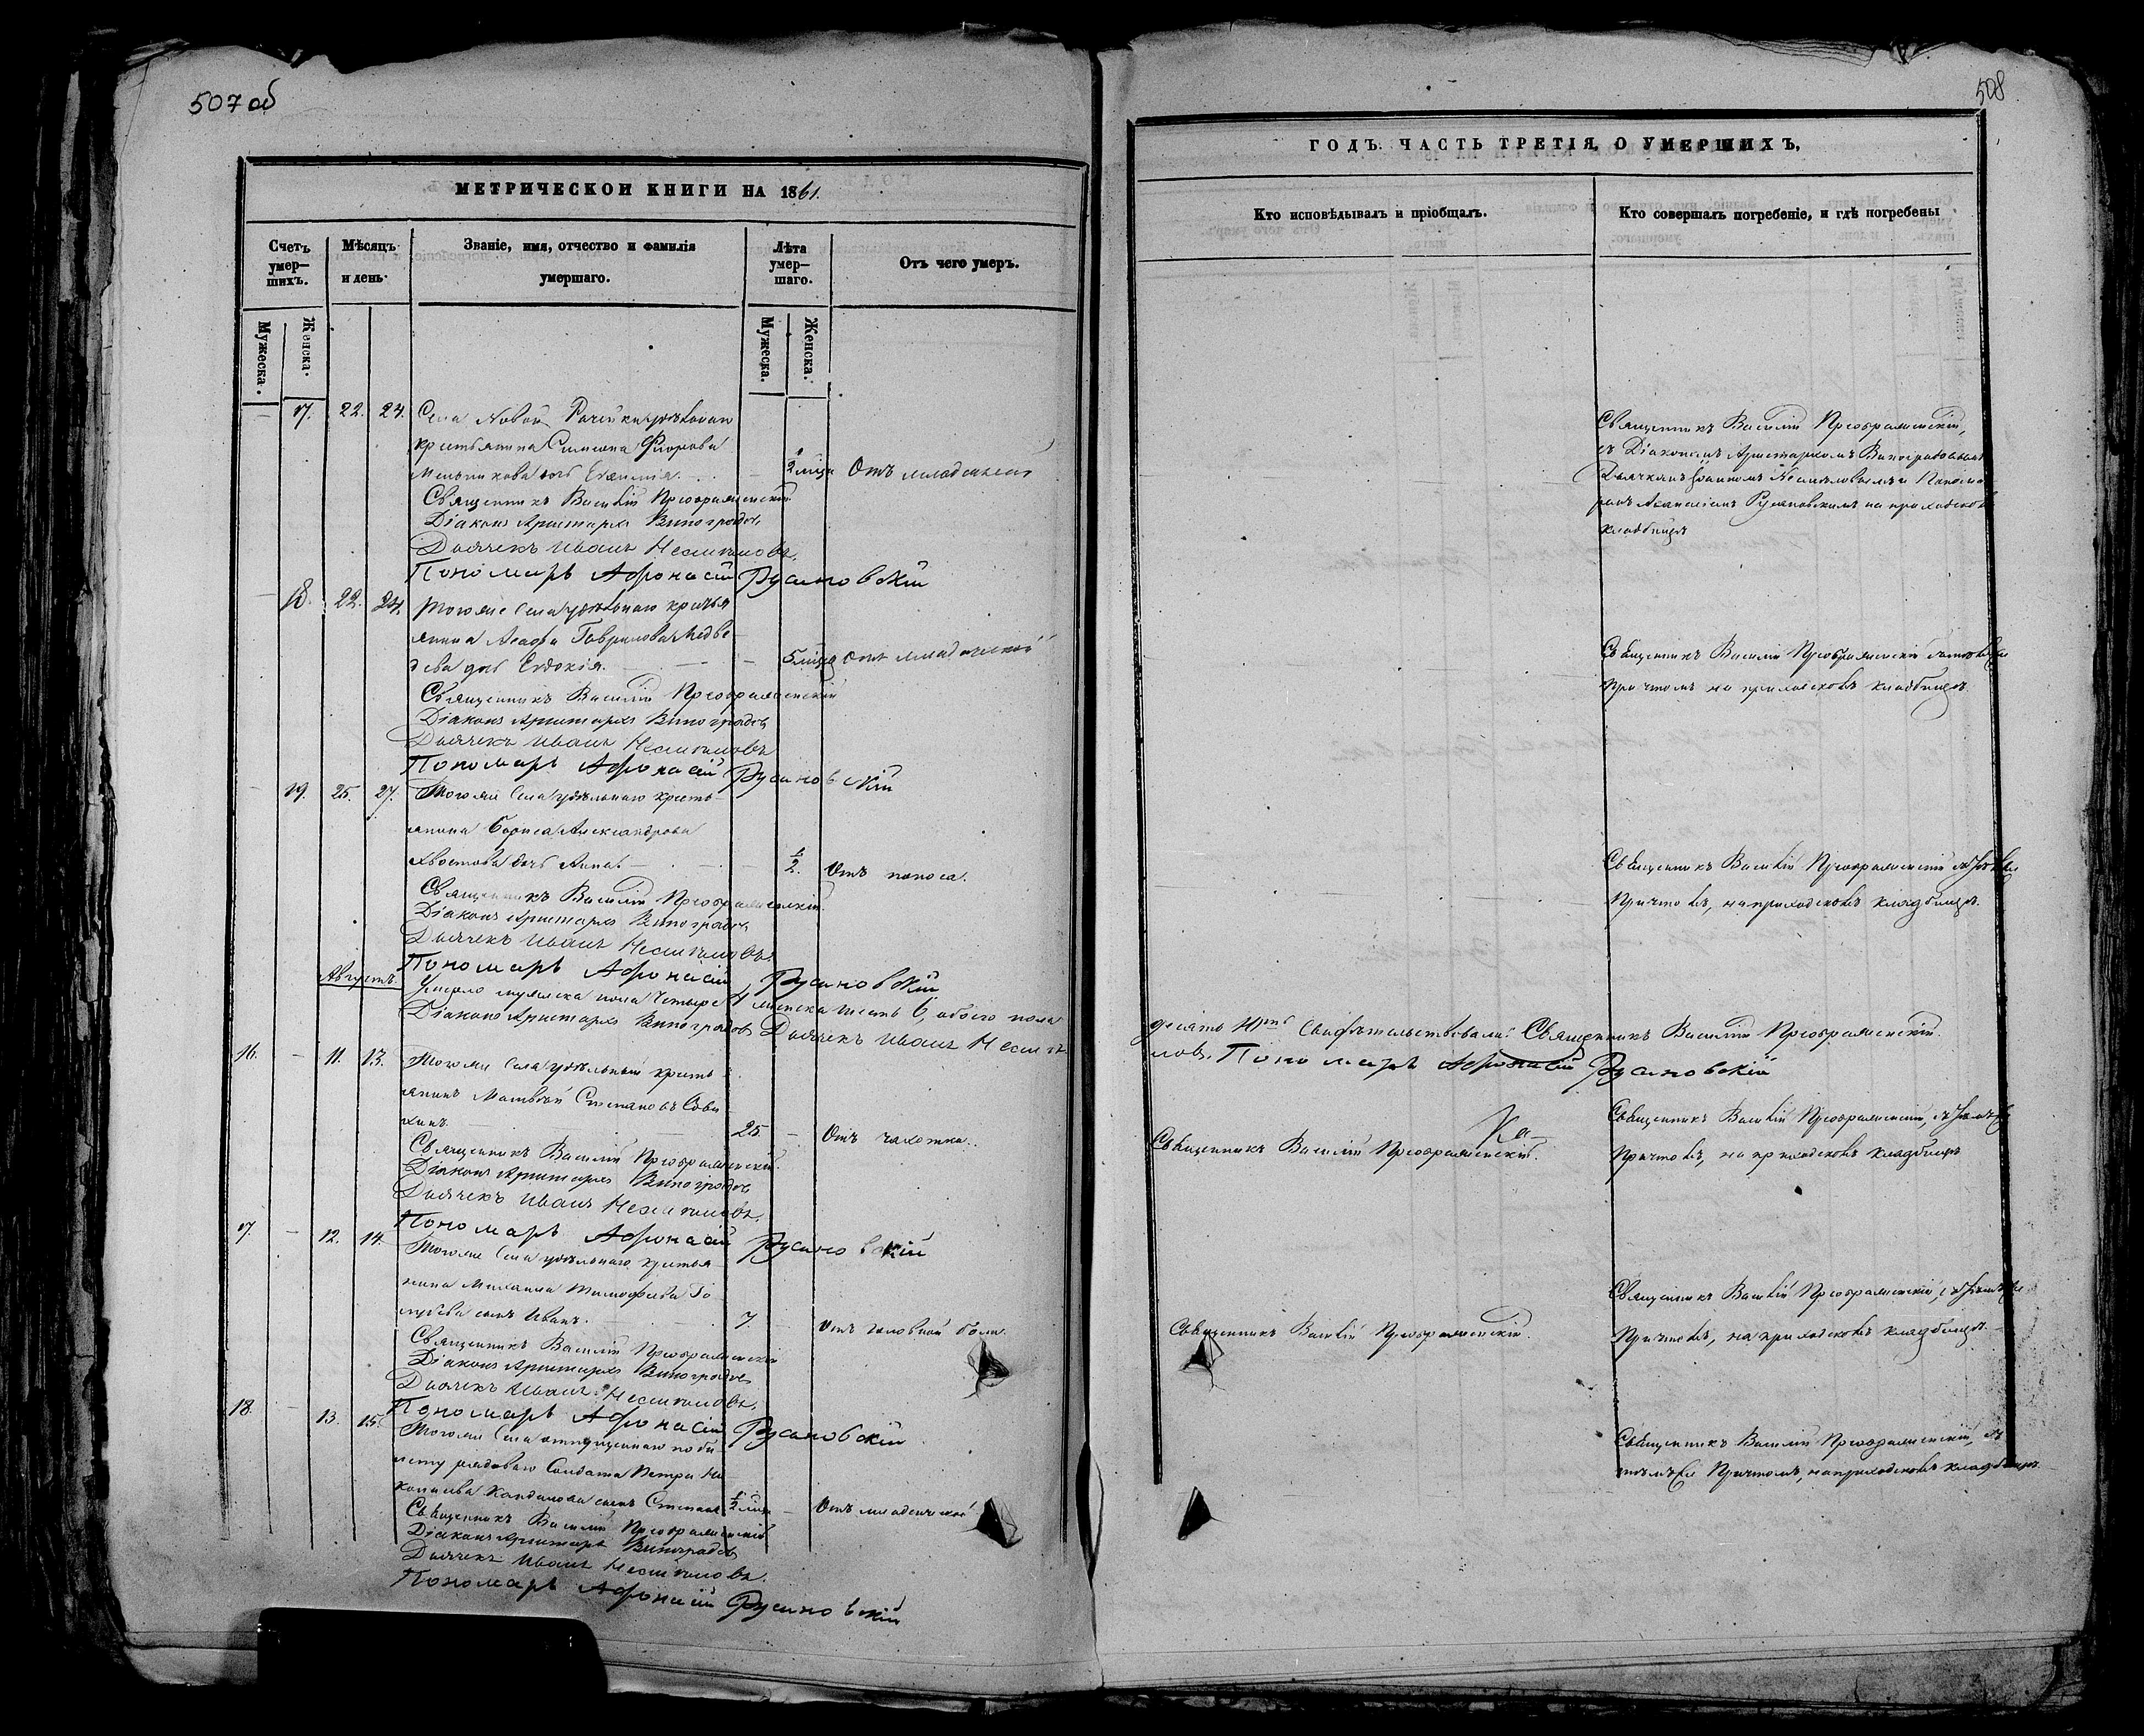 507 об
МЕТРИЧЕСКОЙ КНИГИ НА 1861.
Счетъ умер-шихъ.
Мѣсяцъ и день.
Званіе, имя, отчество и фамилія умершаго.
Лѣта умер-шаго.
Отъ чего умеръ.
Мужеска.
Женска.
Мужеска.
Женска.
17. 22. 24. Села Новой Рачейки удѣльнаго
крестьянина Симеона Фиорова
Мельникова дочь Евѳимія. 2 мѣся Отъ младенческой
Священникъ Василій Преображенскій
Діаконъ Аристархъ Виноградовъ
Дьячекъ Иванъ
Пономарь Афонасій Русановскій
18. 22. 24. Тогоже Села удѣльнаго крестья
янина Гаврилова Медве
дева дочь Евдокія. 5 мѣся Отъ младенческой
Священникъ Василій Преображенскій
Діаконъ Аристархъ Виноградовъ
Дьячекъ Иванъ
Пономарь Афонасій Русановскій
19. 25. 27. Тогоже Села удѣльнаго кресть-
янина Бориса Александрова
Хвостова дочь Анна. 1/2. Отъ поноса.
Священникъ Василій Преображенскій
Діаконъ Аристархъ Виноградовъ
Дьячекъ Иванъ
Пономарь Афонасій Русановскій
Августъ. Умерло мужеска пола четыре 4 женска шесть 6, обоего пола
Діаконъ Аристархъ Виноградовъ Дьячекъ Иванъ
16. 11. 13. Тогоже Села удѣльный кресть-
янинъ Матвей Степановъ
25. Отъ чахотки.
Священникъ Василій Преображенскій
Діаконъ Аристархъ Виноградовъ
Дьячекъ Иванъ
Пономарь Афонасій Русановскій
17. 12. 14. Тогоже Села удѣльнаго крестья
нина Михаила Тимофеева Го
лубева сынъ Иванъ. 7. Отъ головной боли.
Священникъ Василій Преображенскій
Діаконъ Аристархъ Виноградовъ
Дьячекъ Иванъ
Пономарь Афонасій Русановскій
18. 13. 15. Тогоже Села отпущеннаго по би-
лету рядоваго Солдата Петра
сынъ Степанъ 1/2 Отъ младенческой
Священникъ Василій Преображенскій
Діаконъ Аристархъ Виноградовъ
Дьячекъ Иванъ
Пономарь Афонасій Русановскій
508
ГОДЪ. ЧАСТЬ ТРЕТІЯ, О УМЕРШИХЪ.
Кто исповѣдывалъ и пріобщалъ.
Кто совершалъ погребеніе, и гдѣ погребены
Священникъ Василій Преображенскій,
съ Діакономъ Аристархомъ Виноградовымъ
Дьячкомъ Іоанномъ и Понома
ремъ Афанасіемъ Русановскимъ на приходскомъ
кладбищѣ
Священникъ Василій Преображенскій
причтомъ на приходскомъ кладбищѣ
Священникъ Василій Преображенскій
Причтомъ, на приходскомъ кладбищѣ.
десять 10ть Свидѣтельствовали: Священникъ Василій Преображенскій
Пономарь Афонасій Русановскій
Священникъ Василій Преображенскій.
Священникъ Василій Преображенскій,
Причтомъ, на приходскомъ кладбищѣ
Священникъ Василій Преображенскій.
Священникъ Василій Преображенскій,
Причтомъ, на приходскомъ кладбищѣ.
Священникъ Василій Преображенскій, съ
тѣмъ же Причтомъ, на приходскомъ кладбищѣ.